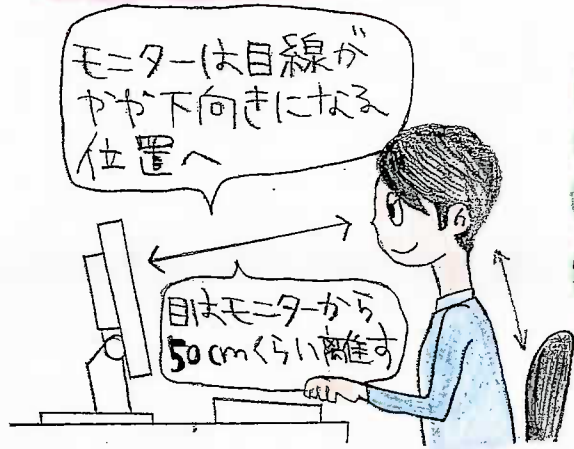 モニターは目線が
やや下向きになる
位置へ
目はモニターから
50cmくらい離す